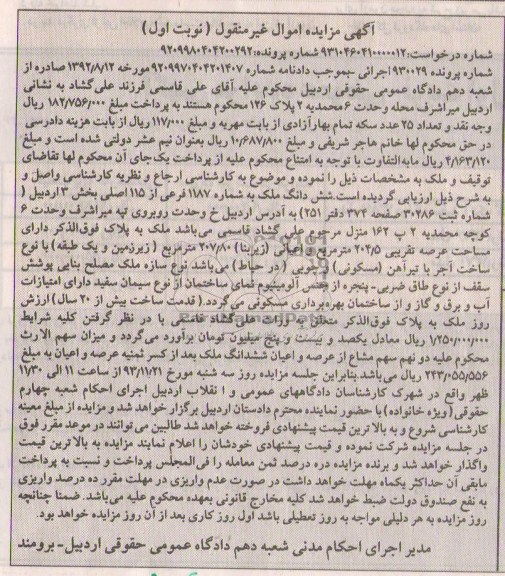 آگهی مزایده اموال غیرمنقول ( نوبت اول )
شماره درخواست:۹۳۱۰۴۶۰۴۱۰۰۰۰۰۱۲ شماره پرونده:۹۲۰۹۹۸۰۴۰۴۲۰۰۲۹۲
شماره پرونده ۹۳۰۰۲۹ اجرائی -بموجب دادنامه شماره ۹۲۰۹۹۷۰۴۰۴۲۰۱۴۰۷ مورخه ۱۳۹۲/۸/۱۲ صادره از
شعبه دهم دادگاه عمومی حقوقی اردبیل محکوم علیه آقای علی قاسمی فرزند علی‌گشاد به نشانی
اردبیل میراشرف محله وحدت ۶ محمدیه ۲ پلاک ۱۲۶ محکوم هستند به پرداخت مبلغ ۱۸۲/۷۵۶/۰۰۰ ریال
وجه نقد و تعداد ۲۵ عدد سکه تمام بهارآزادی از بابت مهریه و مبلغ ۱۱۷/۰۰۰ ریال از بابت هزینه دادرسی
در حق محکوم لها خانم هاجر شریفی و مبلغ ۱۰/۶۸۷/۸۰۰ ریال بعنوان نیم عشر دولتی شده است و مبلغ
۴/۱۶۳/۱۲۰ ریال مابه‌التفاوت با توجه به امتناع محکوم علیه از پرداخت یک‌جای آن محکوم لها تقاضای
توقیف و ملک به مشخصات ذیل را نموده و موضوع به کارشناسی ارجاع و نظریه کارشناسی واصل و
به شرح ذیل ارزیابی گردیده است.شش دانگ ملک به شماره ۱۱۸۷ فرعی از ۱۱۵ اصلی بخش ۳ اردبیل (
شماره ثبت ۳۰۲۸۶ صفحه ۳۷۴ دفتر ۲۵۱) به آدرس اردبیل خ وحدت روبروی تپه میراشرف وحدت ۶
کوچه محمدیه ۲ پ ۱۶۲ منزل مرحوم علی گشاد قاسمی می‌باشد ملک به پلاک فوق‌الذکر دارای
مساحت عرصه تقریبی ۲۰۴/۵ مترمربع و اعیانی (زیربنا) ۲۰۷/۸۰ مترمربع ( زیرزمین و یک طبقه) با نوع
ساخت آجر با تیرآهن (مسکونی) و جنوبی ( در حیاط) می‌باشد نوع سازه ملک مصلح بنایی پوشش
سقف از نوع طاق ضربی- پنجره از جنس آلومینیوم نمای ساختمان از نوع سیمان سفید دارای امتیازات
آب و برق و گاز و از ساختمان بهره‌برداری مسکونی می‌گردد.( قدمت ساخت بیش از ۲۰ سال) ارزش
روز ملک به پلاک فوق‌الذکر متعلق به وراث علی‌گشاد قاسمی با در نظر گرفتن کلیه شرایط
۱/۲۵۰/۰۰۰/۰۰۰ ریال معادل یکصد و بیست و پنج میلیون تومان برآورد می‌گردد و میزان سهم الارث
محکوم علیه دو نهم سهم مشاع از عرصه و اعیان ششدانگ ملک بعد از کسر ثمنیه عرصه و اعیان به مبلغ
۲۴۳/۰۵۵/۵۵۶ ریال می‌باشد.بنابراین جلسه مزایده روز سه شنبه مورخ ۹۳/۱۱/۲۱ از ساعت ۱۱ الی ۱۱/۳۰
ظهر واقع در شهرک کارشناسان دادگاههای عمومی و انقلاب اردبیل اجرای احکام شعبه چهارم
حقوقی (ویژه خانواده) با حضور نماینده محترم دادستان اردبیل برگزار خواهد شد و مزایده از مبلغ معینه
کارشناسی شروع و به بالاترین قیمت پیشنهادی فروخته خواهد شد طالبین می‌توانند در موعد مقرر فوق
در جلسه مزایده شرکت نموده و قیمت پیشنهادی خودشان را اعلام نمایند مزایده به بالاترین قیمت
واگذار خواهد شد و برنده مزایده ده درصد ثمن معامله را فی‌المجلس پرداخت و نسبت به پرداخت
مابقی آن حداکثر یکماه مهلت خواهد داشت در صورت عدم واریزی در مهلت مقرر ده درصد واریزی
به نفع صندوق دولت ضبط خواهد شد کلیه مخارج قانونی بعهده محکوم علیه می‌باشد. ضمنا چنانچه
روز مزایده به هر دلیلی مواجه به روز تعطیلی باشد اول روز کاری بعد از آن روز مزایده خواهد بود.
مدیر اجرای احکام مدنی شعبه دهم دادگاه عمومی حقوقی اردبیل- برومند